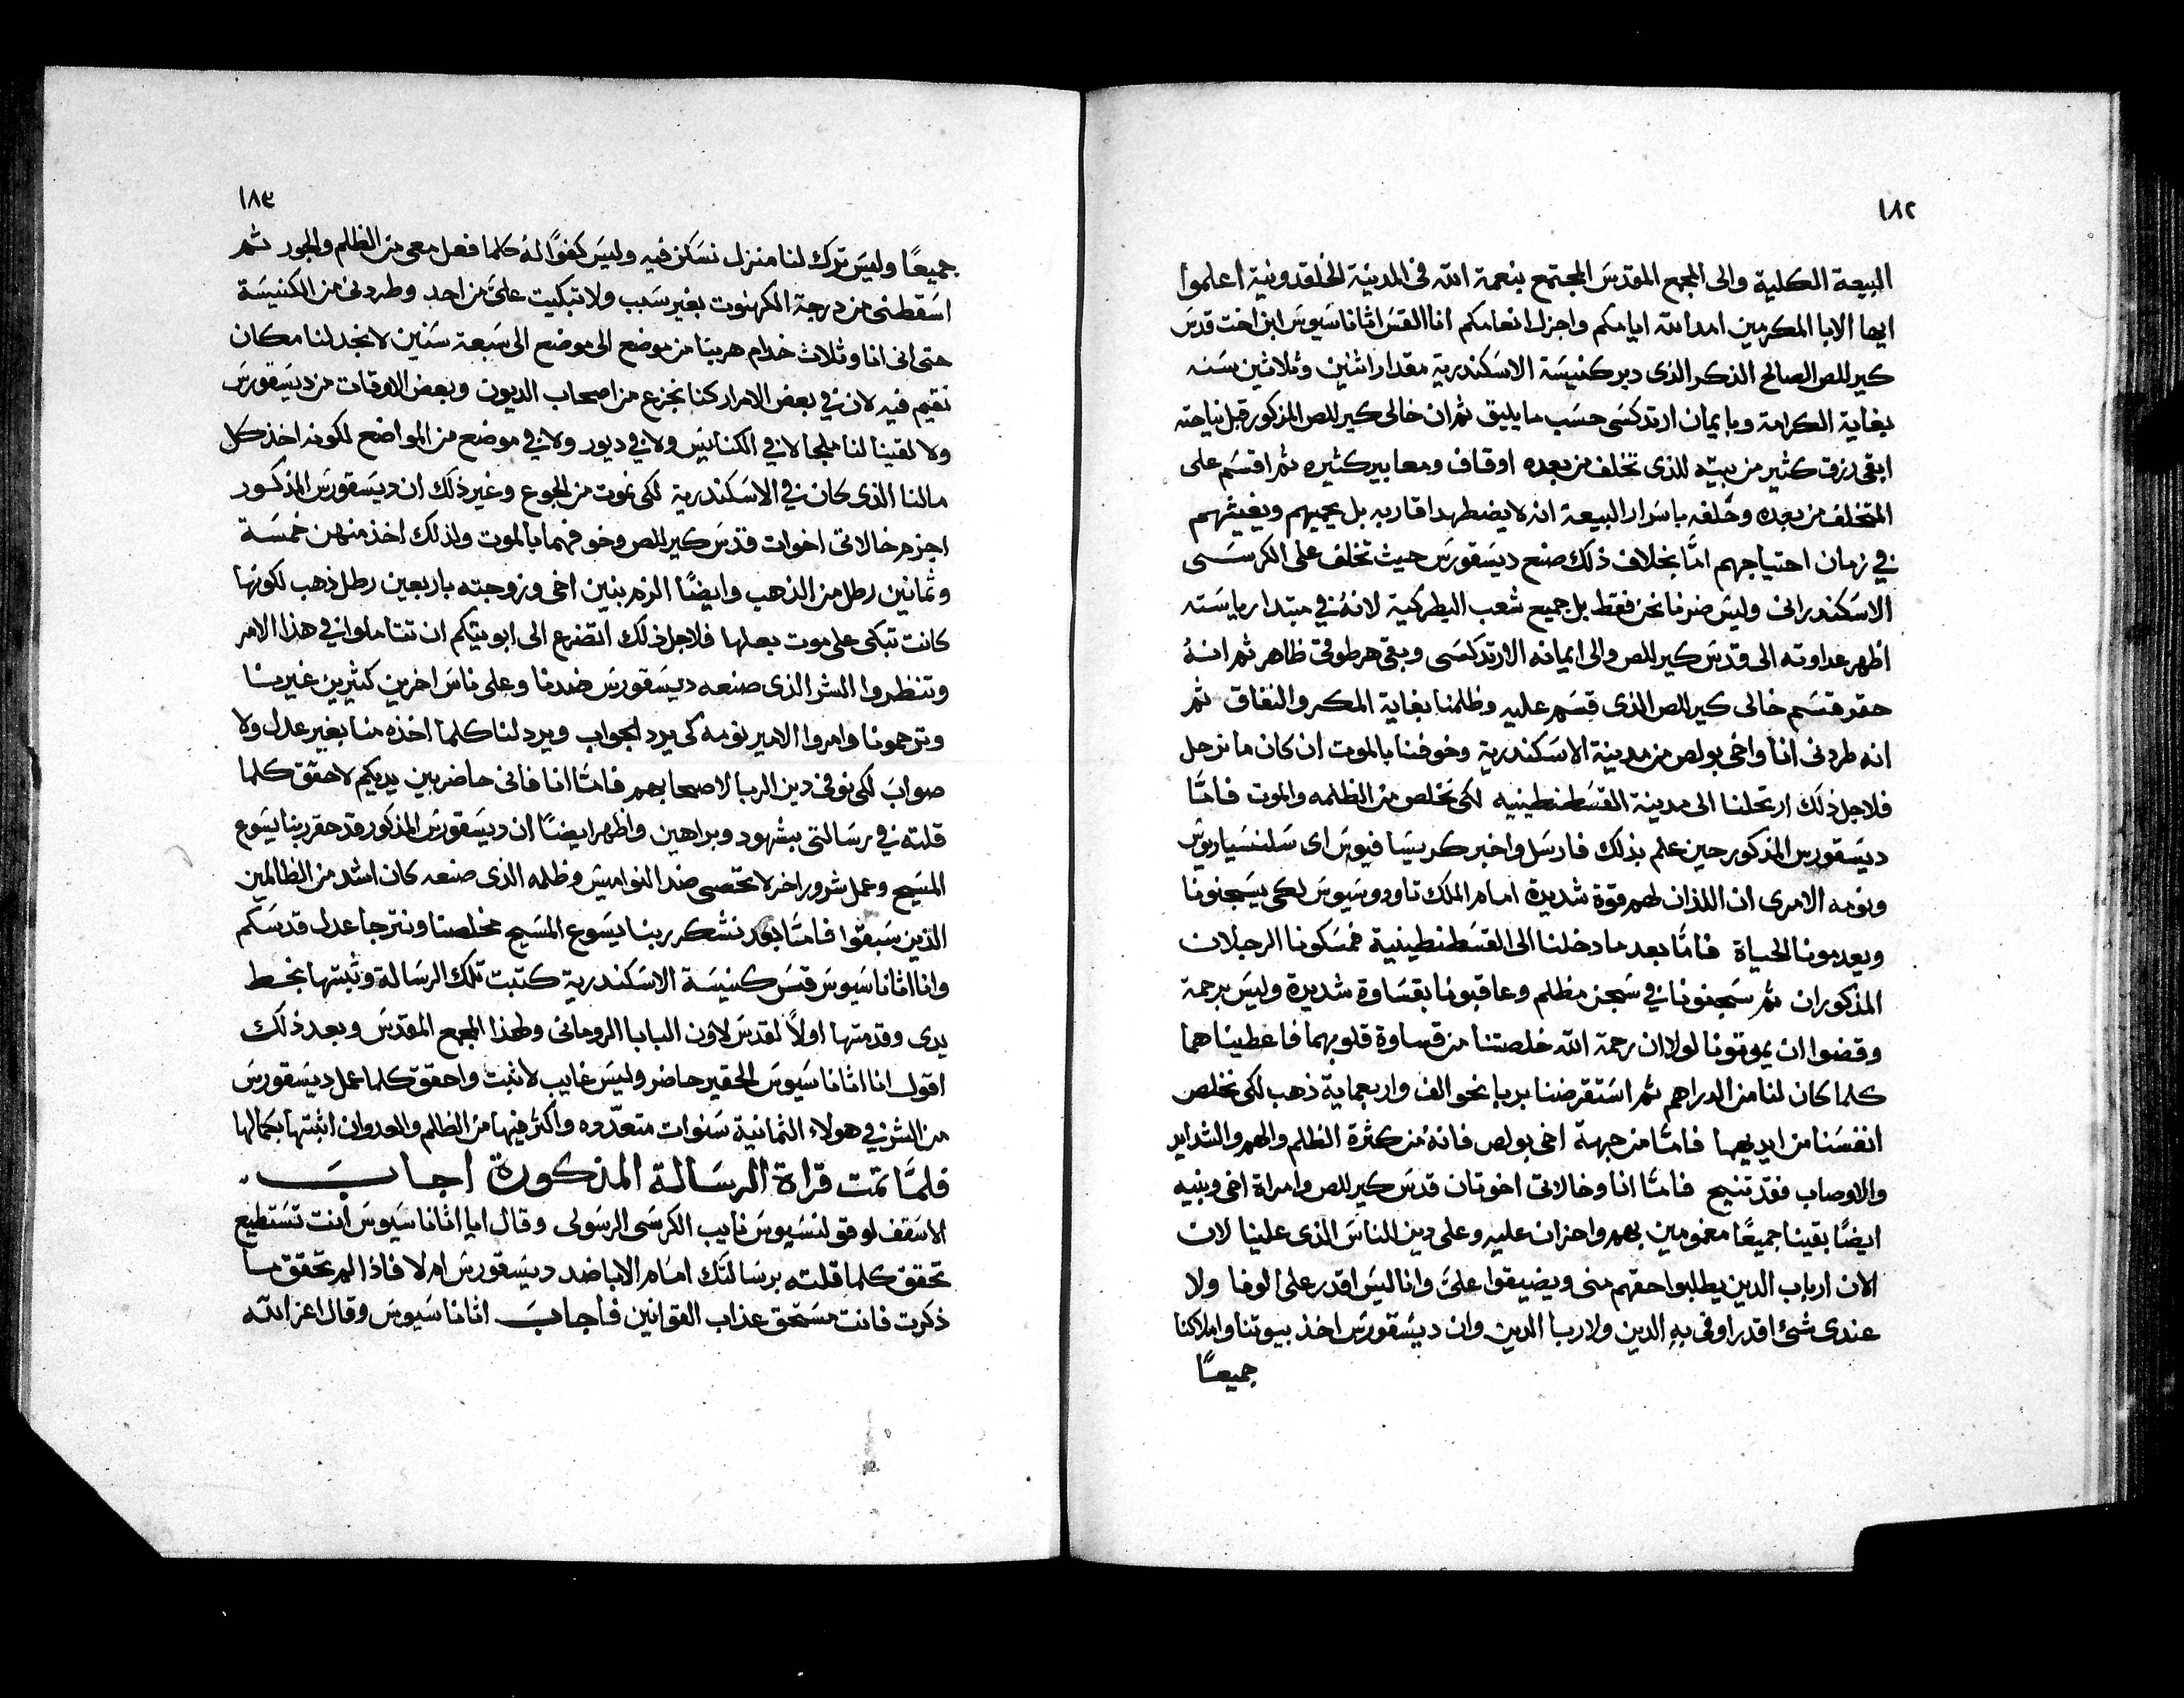 ١٨٢
البيعة الكلية والى المجمع المقدس المجتمع بنعمة الله فى المدينة الخلقدونية اعلموا
ايها الابا المكرمين امد الله ايامكم واجزل انعامكم انا القس اثاناسيوس ابن اخت قدس
كيرللص الصالح الذكر الذى دبر كنيسة الاسكندرية مقدار اثنين وثلاثين سنه
بغاية الكرامة وبايمان ارتدكسى حسب ما يليق ثم ان خالى كيرللص المذكور قبل نياحته
ابقى رزق كثير من بيته للذى تخلف من بعده اوقاف ومعابير كثيره ثم اقسم على
المتخلف من بعده وحلفه باسرار البيعة انه لا يضطهد اقاربه بل يحبيهم ويغيثهم
في زمان احتياجهم امّا بخلاف ذلك صنع ديسقورس حيث تخلف على الكرسى
الاسكندرانى وليس ضرنا نحن فقط بل جميع شعب البطركية لانهُ في مبتدا رياسته
اظهر عداوته الى قدس كيرللص والى ايمانه الارتدكسى وبقى هرطوقى ظاهر ثم انهُ
حقر قسم خالى كيرللص الذى قسم عليه وظلمنا بغاية المكر والنفاق ثم
انه طردنى انا واخى بولص من مدينة الاسكندرية وخوفنا بالموت ان كان ما نرحل
فلاجل ذلك ارتحلنا الى مدينة القسطنطينيه لكى نخلص من الظلمه والموت فامّا
ديسقورس المذكور حين علم بذلك فارسل واخبر كريسافيوس اى سلنسياريوس
ونومه الامرى ان اللذان لهم قوة شديدة امام الملك تاودوسيوس لكى يسجنونا
ويعدمونا الحياة فامّا بعد ما دخلنا الى القسطنطينية فمسكونا الرجلان
المذكوران ثم سجنونا في سجن مظلم وعاقبونا بقساوة شديدة وليس برحمة
وقضوا ان يموتونا لولا ان رحمة الله خلصتنا من قساوة قلوبهما فاعطيناهما
كلما كان لنا من الدراهم ثم استقرضنا بربا نحو الف واربعماية ذهب لكى نخلص
انفسنا من ايديهما فامّا من جهة اخى بولص فانهُ من كثرة الظلم والهم والشدايد
والاوصاب فقد تنيح فامّا انا وخالاتى اخوتان قدس كيرللص وامراة اخى وبنيه
ايضًا بقينا جميعًا مغمومين بهم واحزان عليه وعلى دين الناس الذى علينا لان
الان ارباب الدين يطلبوا حقهم منى ويضيقوا علىّ وانا ليس اقدر على الوفا ولا
عندى شئ اقدر اوفى به الدين ولا ربا الدين وان ديسقورس اخذ بيوتنا واملاكنا
جميعًا
١٨٣
جميعًا وليس ترك لنا منزل نسكن فيه وليس كفوًا لهُ كلما فعل معى من الظلم والجور ثم
اسقطنى من درجة الكهنوت بغير سبب ولا تبكيت علىّ من احد وطردنى من الكنيسة
حتى انى انا وثلاث خدام هربنا من موضع الى موضع الى سبعة سنين لا نجد لنا مكان
نقيم فيه لان في بعض الامرار كنا نجزع من اصحاب الديون وبعض الاوقات من ديسقورس
ولا لقينا لنا ملجا لا في الكنايس ولا في ديور ولا في موضع من المواضع لكونه اخذ كل
مالنا الذى كان في الاسكندرية لكى نموت من الجوع وغير ذلك ان ديسقورس المذكور
اجزم خالاتى اخوات قدس كيرللص وخوفهما بالموت ولذلك اخذ منهن خمسة
وثمانين رطل من الذهب وايضًا الزم بنين اخى وزوجته باربعين رطل ذهب لكونها
كانت تبكى على موت بعلها فلاجل ذلك اتضرع الى ابويتكم ان تتاملوا في هذا الامر
وتنظروا الشر الذى صنعه ديسقورس ضدنا وعلى ناس اخرين كثيرين غيرنا
وترحمونا وامروا الامير نومه كى يرد الجواب ويرد لنا كلما اخذه منا بغير عدل ولا
صواب لكى نوفى دين الربا لاصحابهم فامّا انا فانى حاضر بين يديكم لاحقق كلما
قلته في رسالتى بشهود وبراهين واظهر ايضًا ان ديسقورس المذكور قد حقر ربنا يسوع
المسيح وعمل شرور اخر لا تحصى ضد النواميس وظلمه الذى صنعه كان اشد من الظالمين
الذين سبقوا فامّا بعد نشكر ربنا يسوع المسيح مخلصنا ونترجا عدل قدسكم
وانا اثاناسيوس قس كنيسة الاسكندرية كتبت تلك الرسالة وثبتها بخط
يدى وقدمتها اولاً لقدس لاون البابا الرومانى ولهذا المجمع المقدس وبعد ذلك
اقول انا اثاناسيوس الحقير حاضر وليس غايب لاثبت واحقق كلما عمل ديسقورس
من الشر في هولاء الثمانية سنوات متعدّده واكثر فيها من الظلم والعدوان اثبتها بكمالها
فلمّا تمت قراة الرسالة المذكورة اجاب
الاسقف لوقولنسيوس نايب الكرسى الرسولى وقال ايا اثاناسيوس أنت تستطيع
تحقق كلما قلته برسالتك امام الابا ضد ديسقورس ام لا فاذا لم تحقق ما
ذكرت فانت مستحق عذاب القوانين فاجاب اثاناسيوس وقال اعز الله